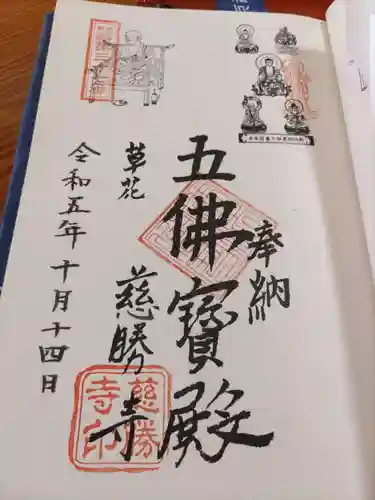 奉納
五佛寶殿
草花
慈勝寺
令和五年十月十四日
慈勝
寺印